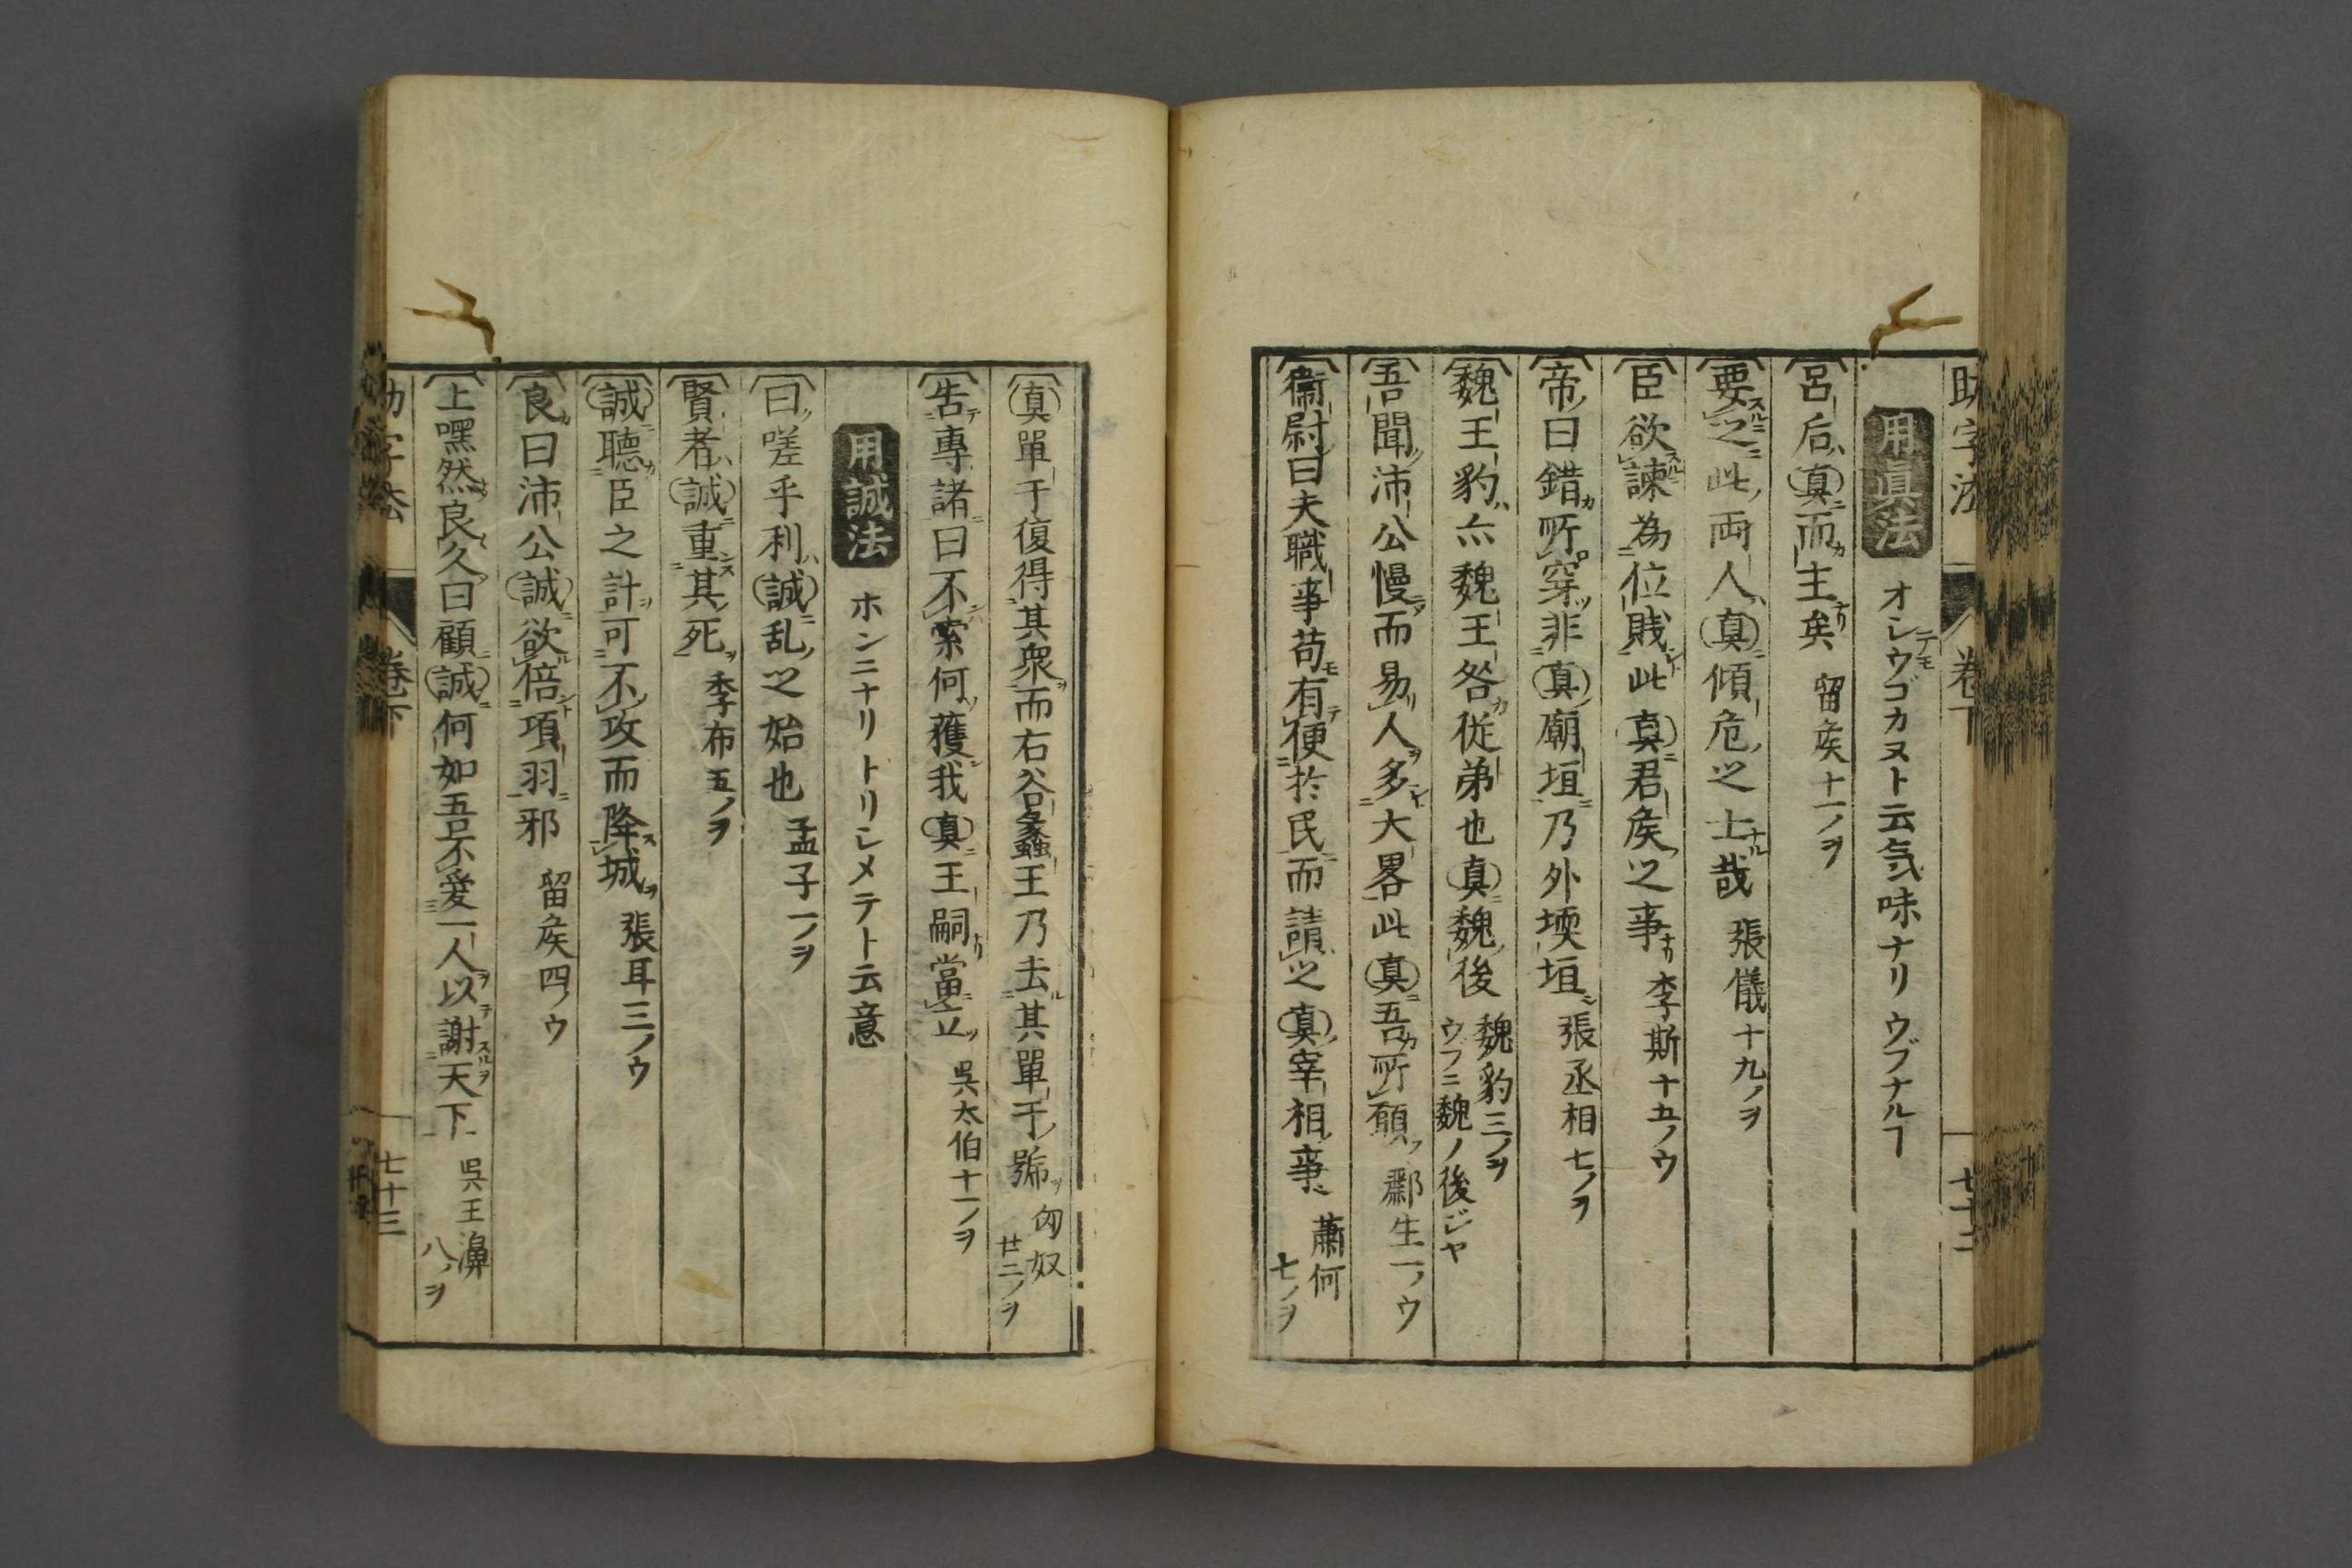 助字法 卷下 七十二
用眞法 オシウゴカヌト云気味ナリ ウブナルヿ
呂后真而主矣 留矦十一ノヲ
要之此両人真傾危之士哉 張儀十九ノヲ
臣欲諫為位賤此真君矦之事 李斯十五ノウ
帝曰錯所穿非真廟垣乃外堧垣 張丞相七ノヲ
魏王豹亦魏王咎従弟也真魏後 魏豹三ノヲ ウフニ魏ノ後ジヤ
吾聞沛公慢而易人多大畧此真吾所願 酈生一ノウ
衞尉曰夫職事苟有便於民而請之真宰相事 蕭何七ノヲ
真單于復得其衆而右谷蠡王乃去其單于號 匈奴廿二ノヲ
告專諸曰不索何獲我真王嗣當立 呉太伯十一ノヲ
用誠法 ホンニナリ トリシメテト云意
曰嗟乎利誠乱之始也 孟子一ノヲ
賢者誠重其死 季布五ノヲ
誠聴臣之計可不攻而降城 張耳三ノウ
良曰沛公誠欲倍項羽邪 留矦四ノウ
上嘿然良久曰顧誠何如吾不愛一人以謝天下 呉王濞八ノヲ
助字法 卷下 七十三